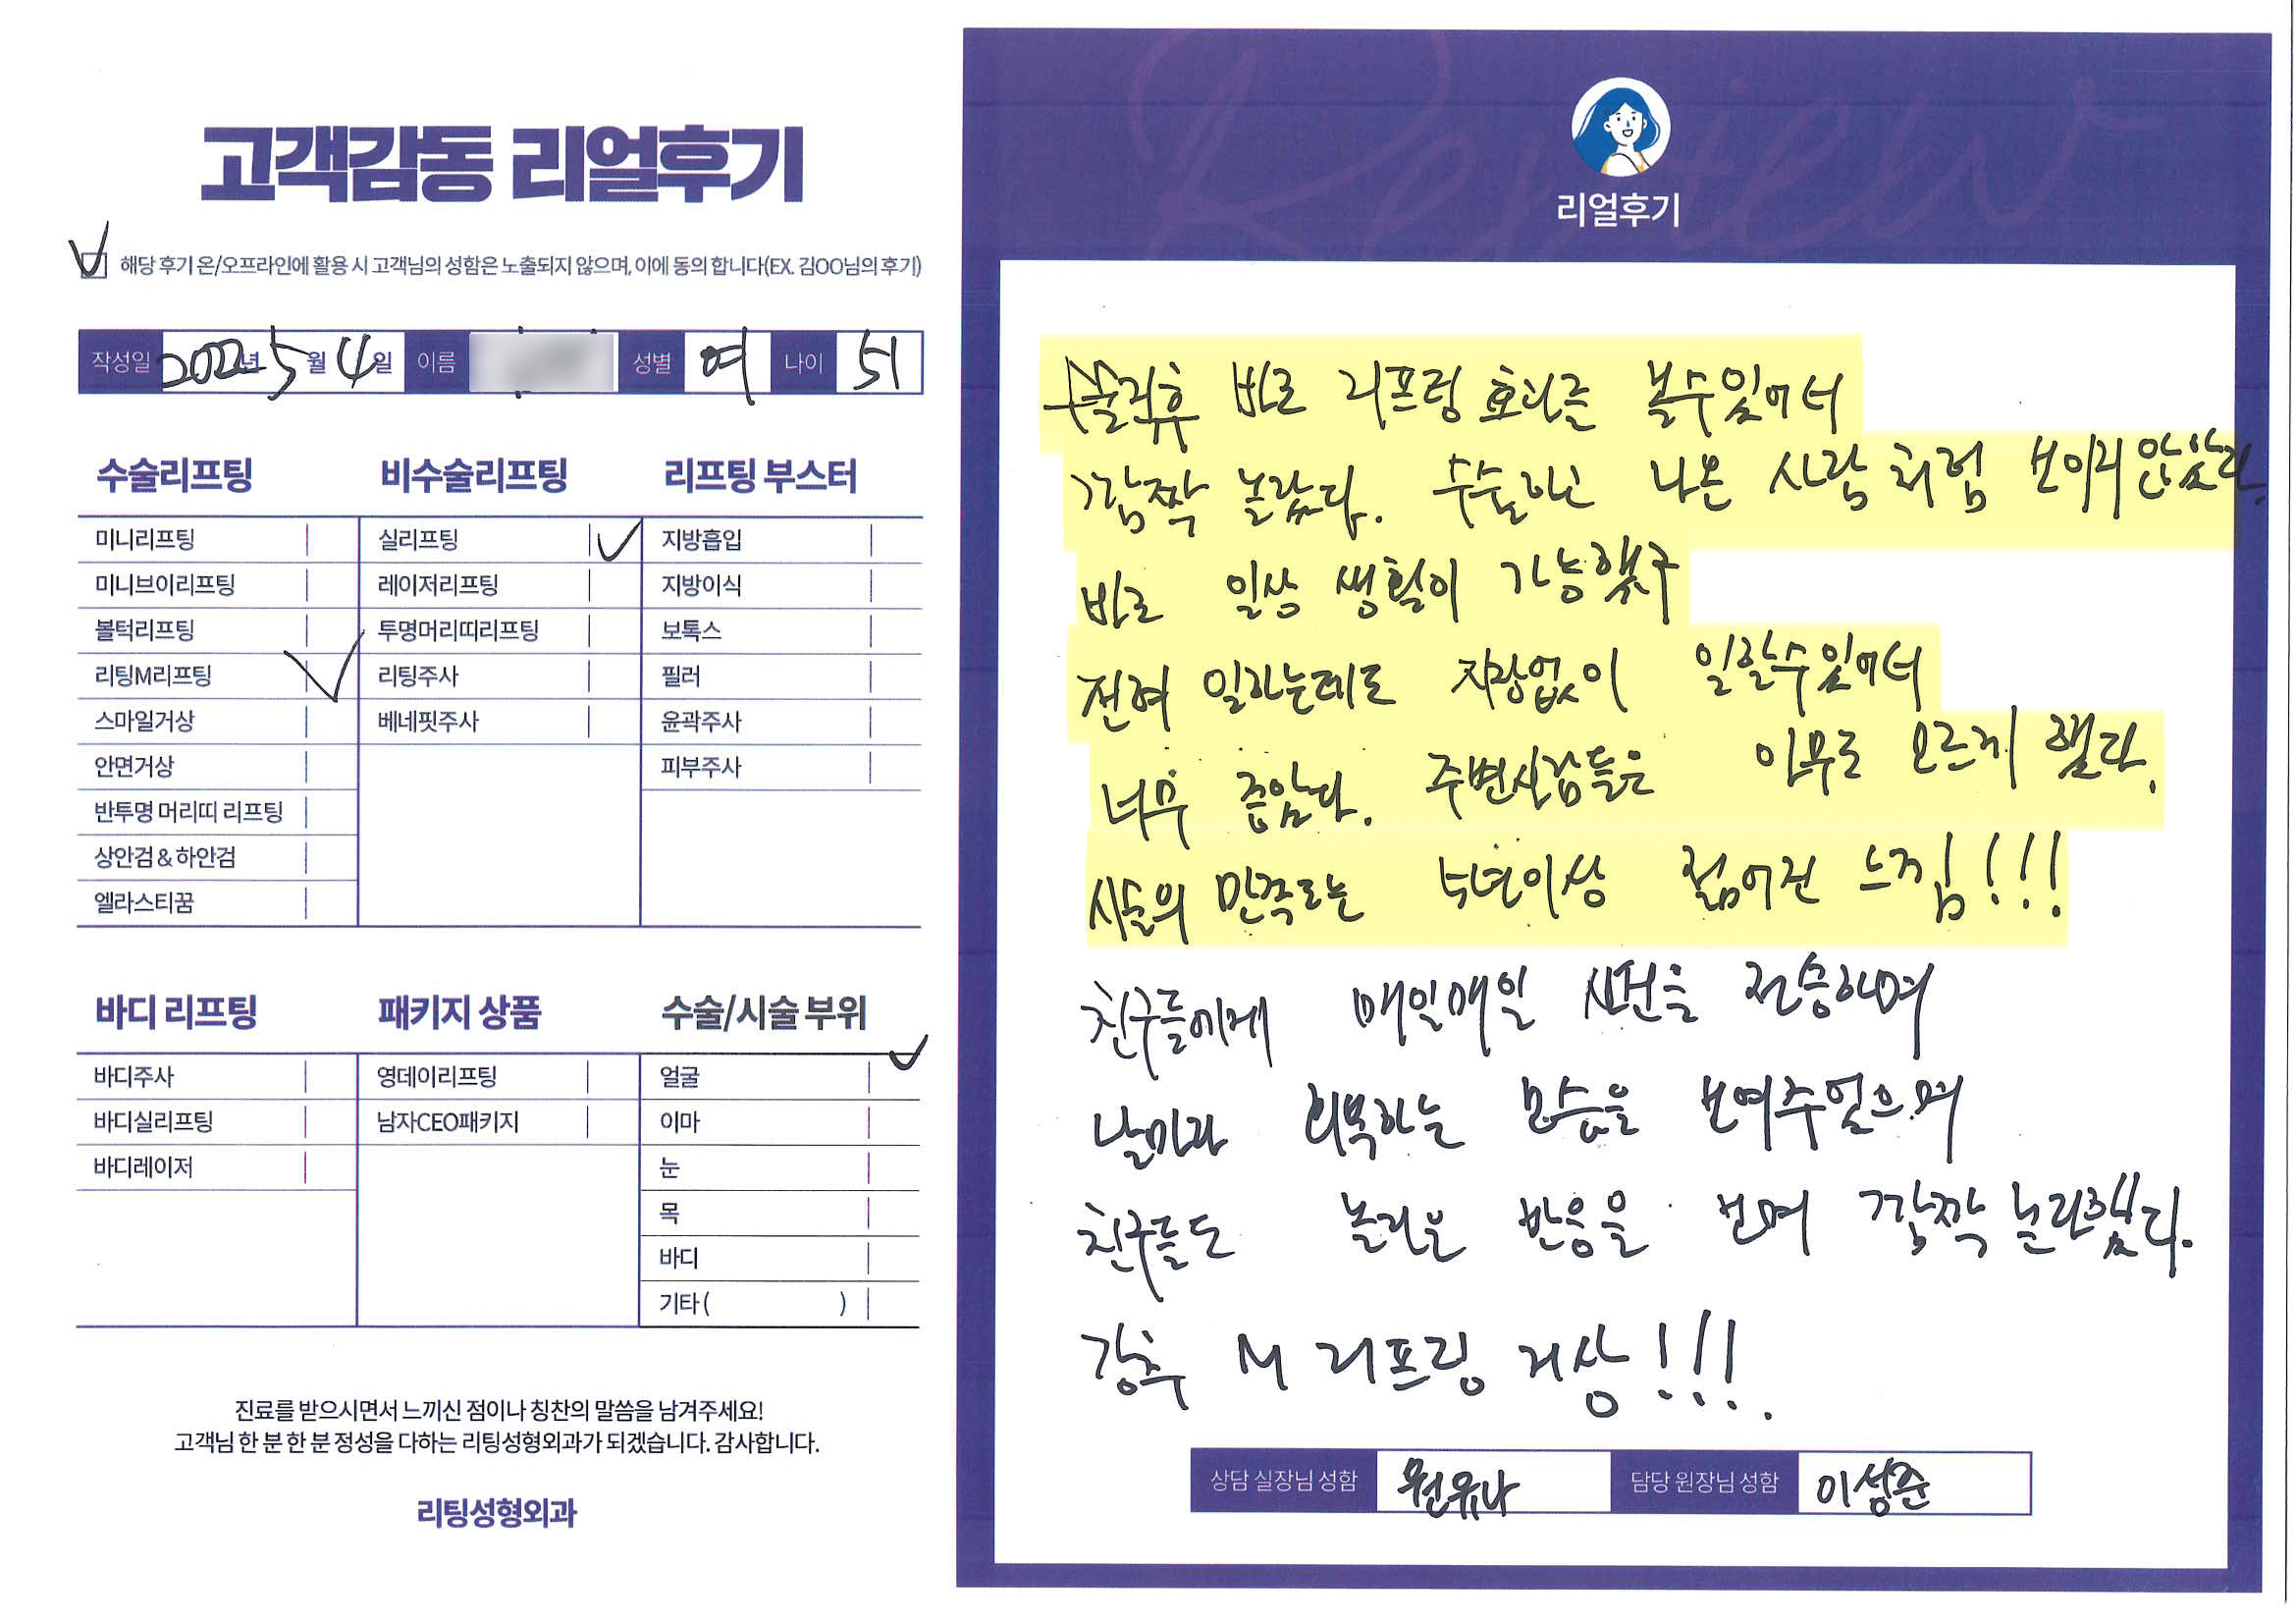 고객감동 리얼후기
해당 후기 온/오프라인에 활용 시 고객님의 성함은 노출되지 않으며, 이에 동의 합니다(EX. 김OO님의 후기)
작성일 2022년 5월 4일 이름 성별 여 나이 51
수술리프팅
미니리프팅
미니브이리프팅
볼턱리프팅
리팅M리프팅
스마일거상
안면거상
반투명 머리띠 리프팅
상안검 & 하안검
엘라스티꿈
비수술리프팅
실리프팅
레이저리프팅
투명머리띠리프팅
리팅주사
베네핏주사
리프팅 부스터
지방흡입
지방이식
보톡스
필러
윤곽주사
피부주사
바디 리프팅
바디주사
바디실리프팅
바디레이저
패키지 상품
영데이리프팅
남자CEO패키지
수술/시술 부위
얼굴
이마
눈
목
바디
기타 ( )
진료를 받으시면서 느끼신 점이나 칭찬의 말씀을 남겨주세요!
고객님 한 분 한 분 정성을 다하는 리팅성형외과가 되겠습니다. 감사합니다.
리팅성형외과
Review
리얼후기
수술직후 바로 리프팅 효과를 볼수있어서
깜짝 놀랐다. 수술하고 나온 사람 처럼 보이지 않았다.
바로 일상 생활이 가능했구
전혀 일하는데도 지장없이 일할수있어서
너무 좋았다. 주변사람들은 아무도 모르게 했다.
시술의 만족도는 5년이상 젊어진 느낌!!!
친구들에게 매일매일 사진을 전송하며
날마다 회복하는 모습을 보여주었으며
친구들도 놀라운 반응을 보며 깜짝 놀라했다.
강추 M 리프팅 거상!!!
상담 실장님 성함 원유나 담당 원장님 성함 이성준